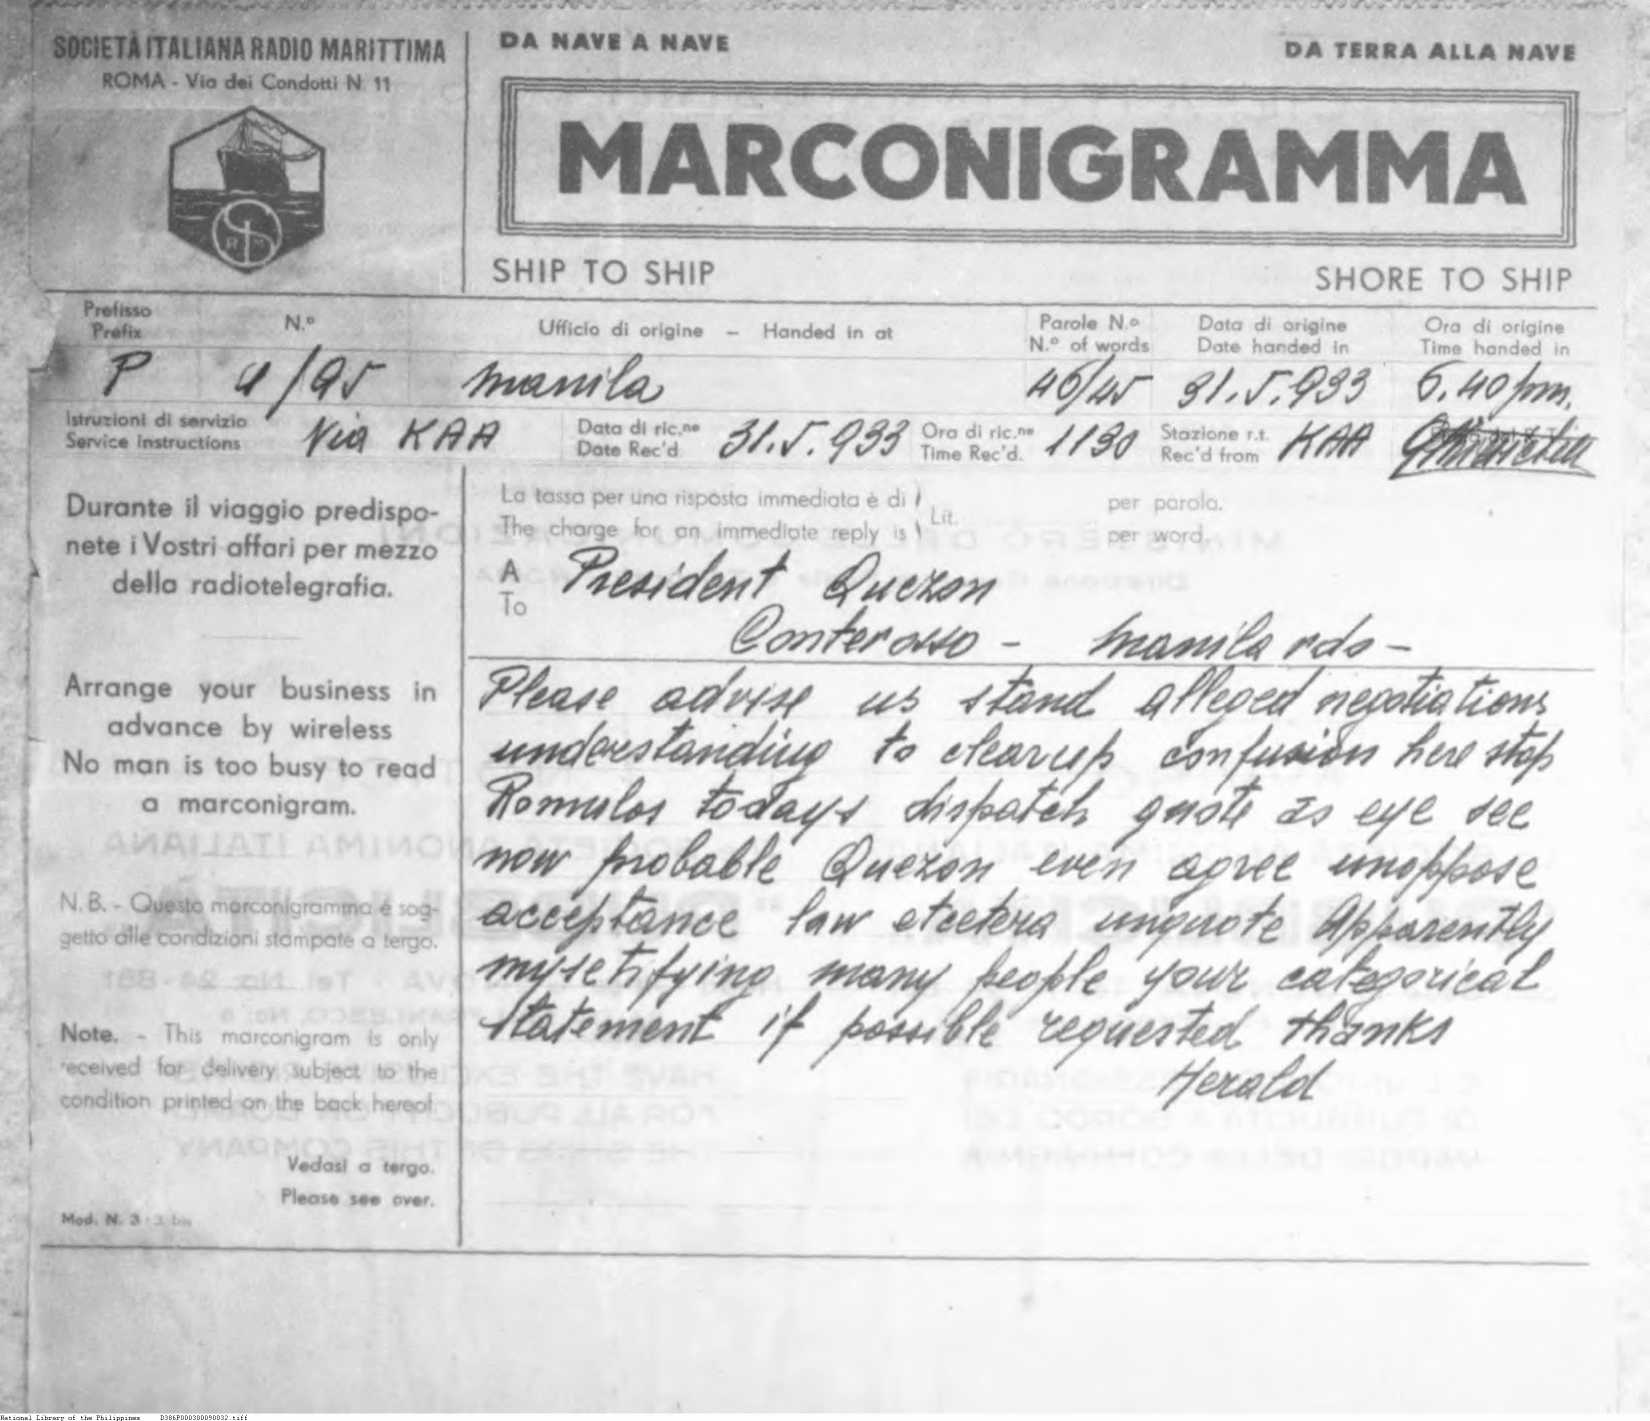 SOCIETÀ ITALIANA RADIO MARITTIMA
ROMA - Via dei Condotti N. 11
DA NAVE A NAVE
DA TERRA ALLA NAVE
MARCONIGRAMMA
SHIP TO SHIP
SHORE TO SHIP
Prefisso
Prefix
N.º
Ufficio di origine - Handed in at
Parole N.º
N.º of words
Data di origine
Date handed in
Ora di origine
Time handed in
P
4/95
Manila
46/45
31.5.933
6.40 pm.
Istruzioni di servizio
Service Instructions
Via KAA
Data di ric.ne
Date Rec'd
31.5.933
Ora di ric.ne
Time Rec'd.
1130
Stazione r.t.
Rec'd from
KAA
Durante il viaggio predispo-
nete i Vostri affari per mezzo
della radiotelegrafia.
Arrange your business in
advance by wireless
No man is too busy to read
a marconigram.
N. B. - Questo marconigramma è sog-
getto alle condizioni stampate a tergo.
Note. - This marconigram is only
received for delivery subject to the
condition printed on the back hereof
Vedasi a tergo.
Please see over.
Mod. N. 3 - 3 bis
La tassa per una risposta immediata è di
The charge for an immediate reply is
Lit.
per parola.
per word.
A
To
President Quezon
Conterosso - Manila rdo -
Please advise us stand alleged negotiations
understanding to clearup confusion here stop
Romulos todays dispatch quote as eye see
now probable Quezon even agree unoppose
acceptance law etcetera unquote Apparently
mysetifying many people your categorical
statement if possible requested thanks
Herald
National Library of the Philippines D386P000300090032.tiff